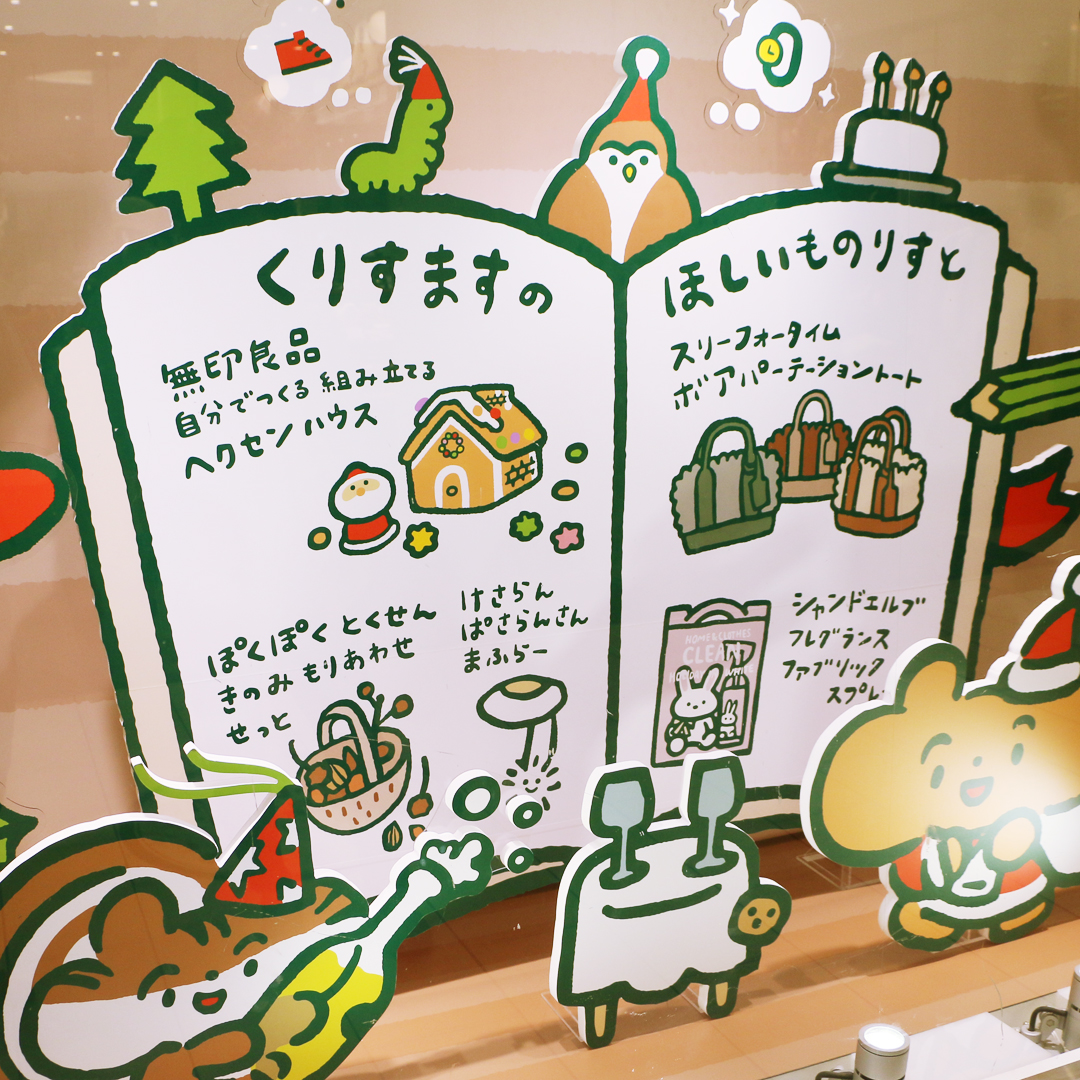 くりすますの
無印良品
自分でつくる 組み立てる
ヘクセンハウス
ぽくぽく とくせん
きのみ もりあわせ
せっと
けさらん
ぱさらんさん
まふらー
ほしいものりすと
スリーフォータイム
ボアパーテーショントート
HOME & CLOTHES
CLEAN
シャンドエルブ
フレグランス
ファブリック
スプレ